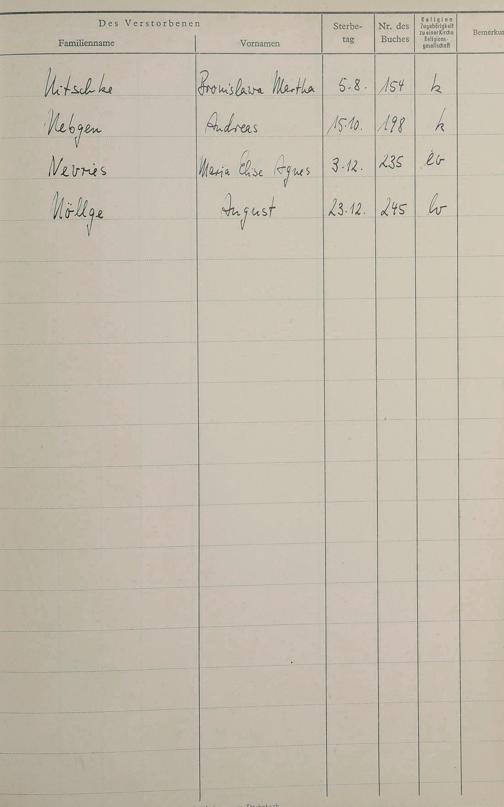 Des Verstorbenen
Familienname Vornamen Sterbe-
tag Nr. des
Buches Religion
Zugehörigkeit
zu einer Kirche
Religions-
gesellschaft
Nitschke Bronislawa Martha 5.8. 154 k
Nebgen Andreas 15.10. 198 k
Nevries Maria Elise Agnes 3.12. 235 ev
Nöllge August 23.12. 245 ev